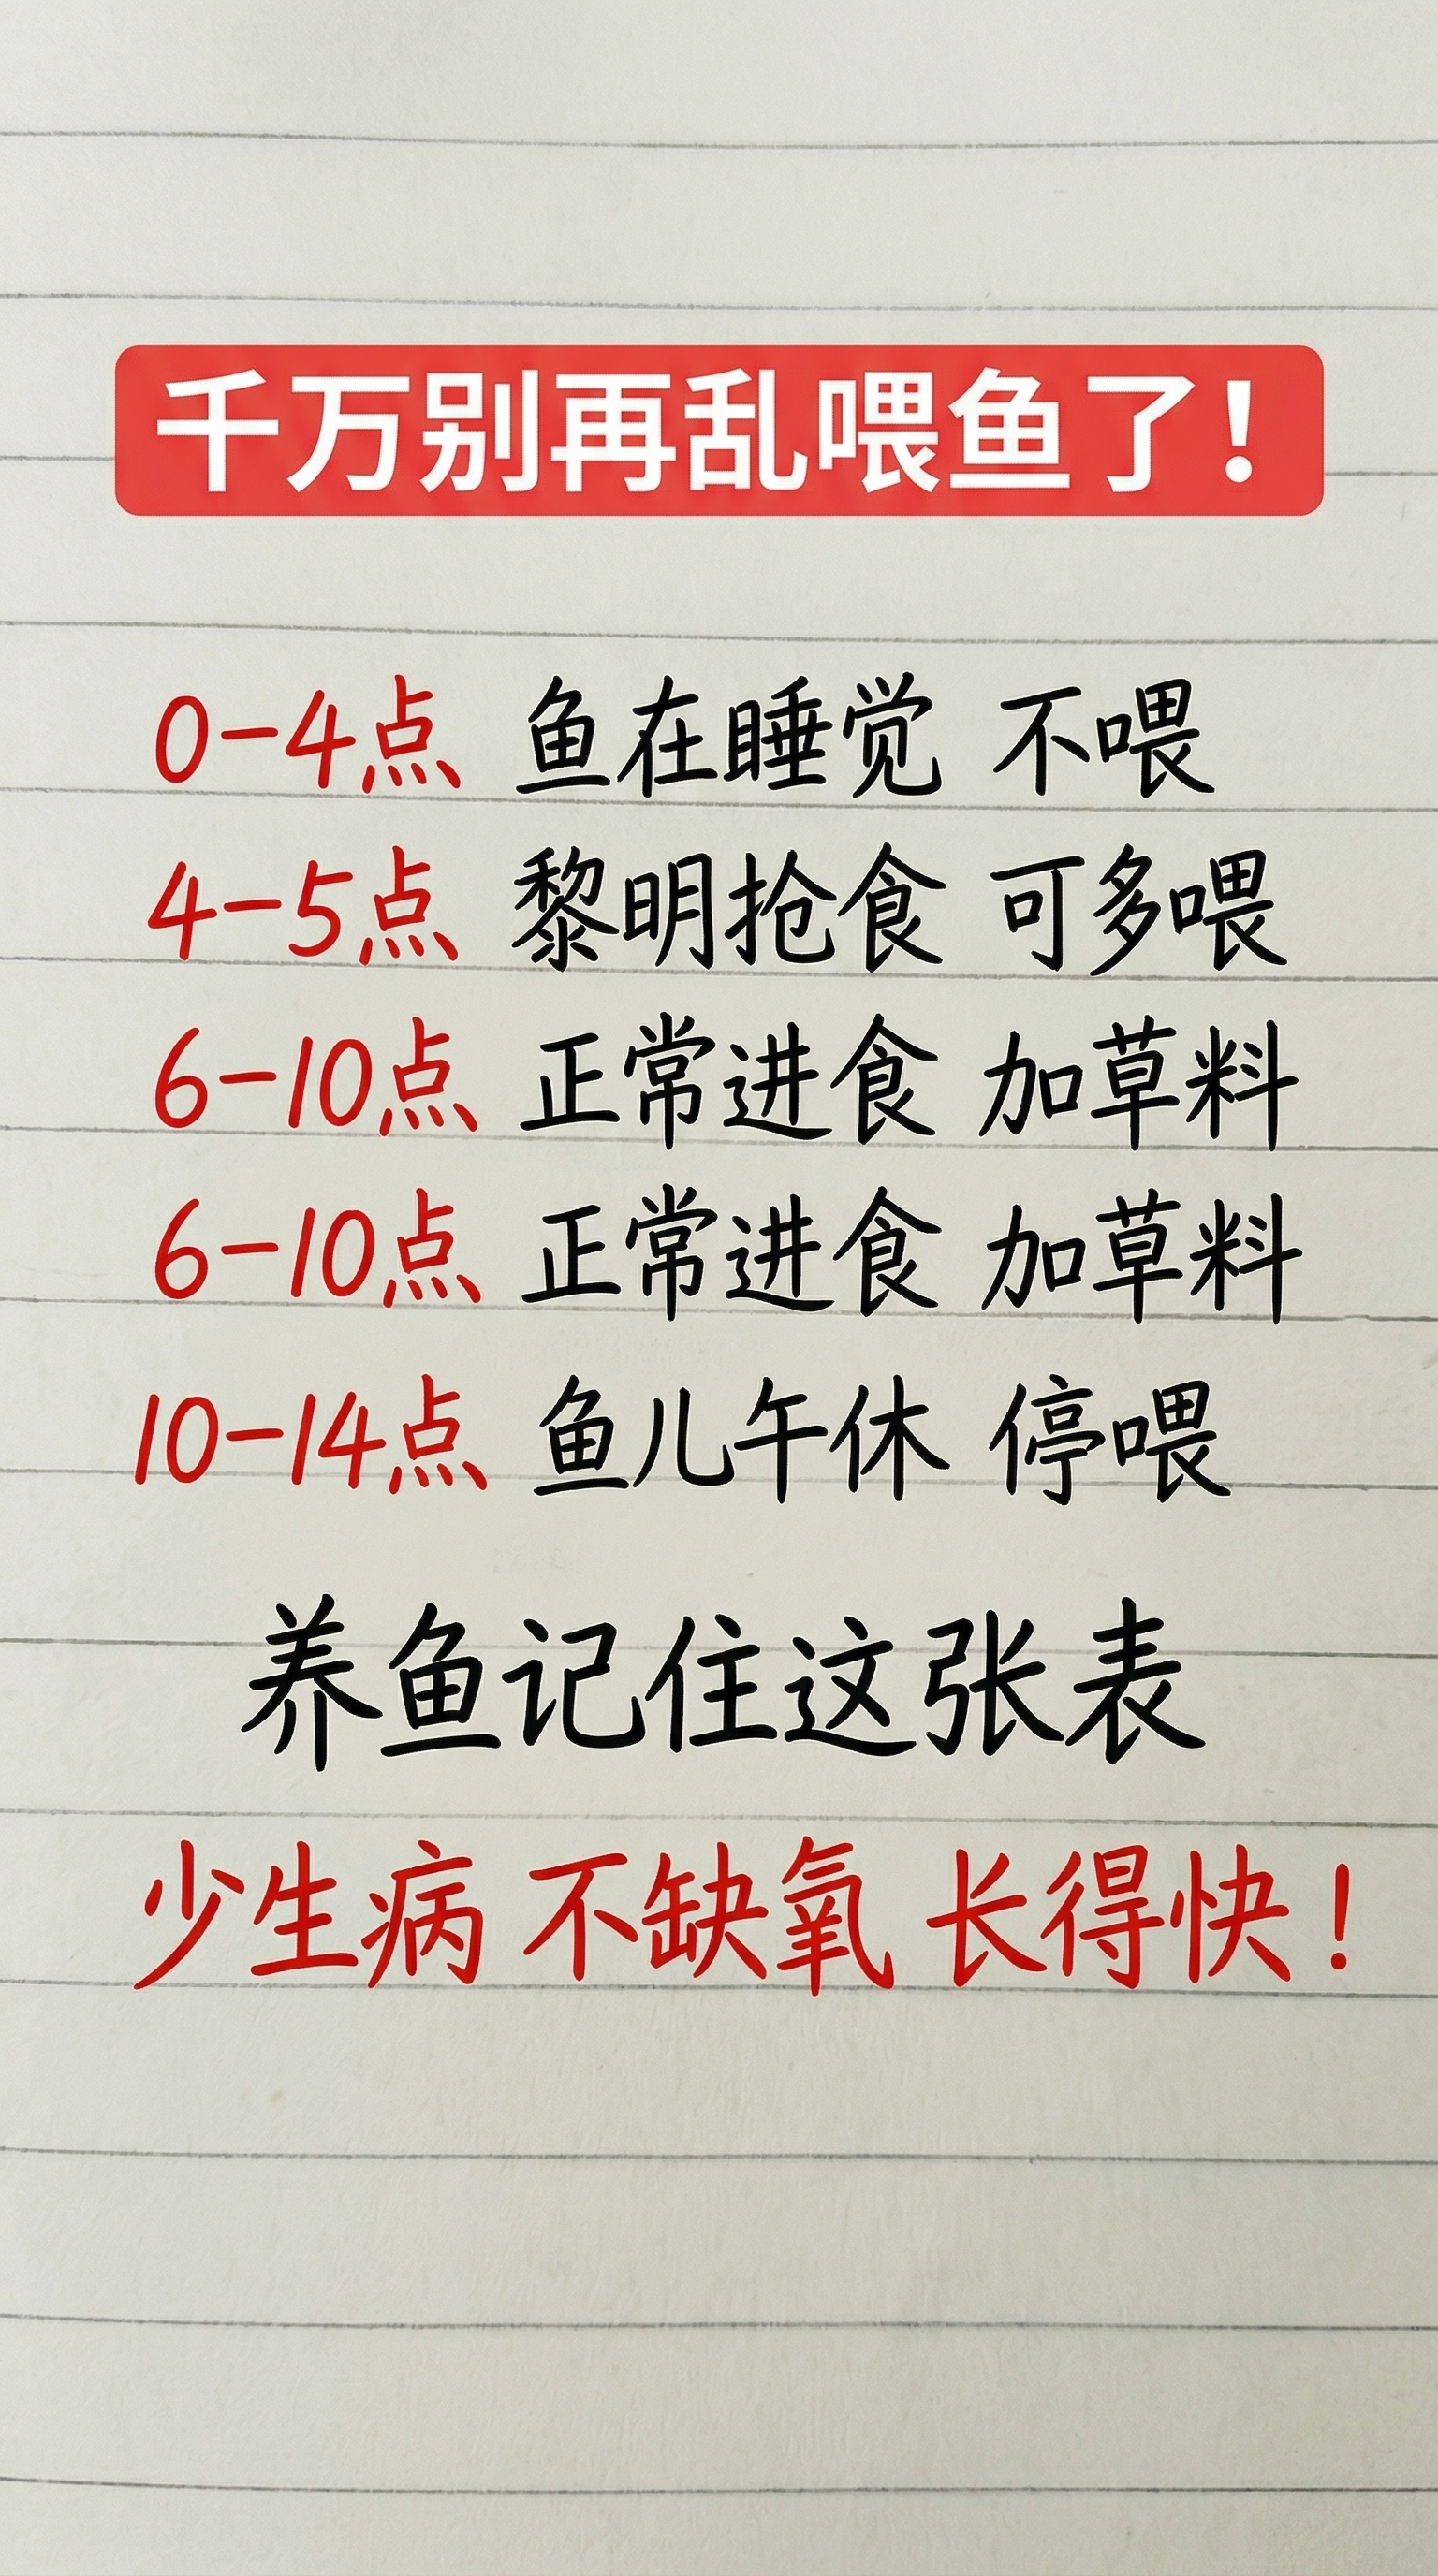 千万别再乱喂鱼了！
0-4点 鱼在睡觉 不喂
4-5点 黎明抢食 可多喂
6-10点 正常进食 加草料
6-10点 正常进食 加草料
10-14点 鱼儿午休 停喂
养鱼记住这张表
少生病 不缺氧 长得快！